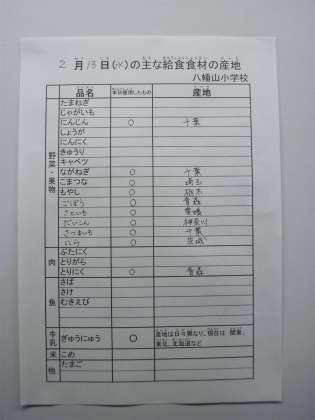 2月13日(水)の主な給食食材の産地
八幡山小学校
品名 本日使用したもの 産地
野菜・果物
たまねぎ
じゃがいも
にんじん ○ 千葉
しょうが
にんにく
きゅうり
キャベツ
ながねぎ ○ 千葉
こまつな ○ 埼玉
もやし ○ 栃木
ごぼう ○ 青森
さといも ○ 愛媛
だいこん ○ 神奈川
さつまいも ○ 千葉
にら ○ 茨城
肉
ぶたにく
とりがら
とりにく ○ 青森
魚
さば
さけ
むきえび
牛乳 ぎゅうにゅう ○ 産地は日々異なり、現在は 関東、
東北、北海道など
米 こめ
他 たまご